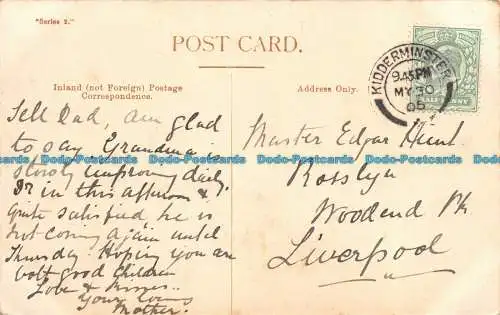 "Series 2."
POST CARD.
Inland (not Foreign) Postage
Correspondence.
Address Only.
KIDDERMINSTER
9.45PM
MY 30
05
HALFPENNY
Tell Dad, am glad
to say Grandma is
slowly improving daily.
Dr in this afternoon &
quite satisfied he is
not coming again until
Thursday. Hoping you are
both good children
Love & kisses..
Your loving
Mother.
Master Edgar Hunt.
Rosslyn
Woodend Pk
Liverpool
Dodo-Postcards Dodo-Postcards Dodo-Postcards Dodo-Postcards Dodo-Postcards